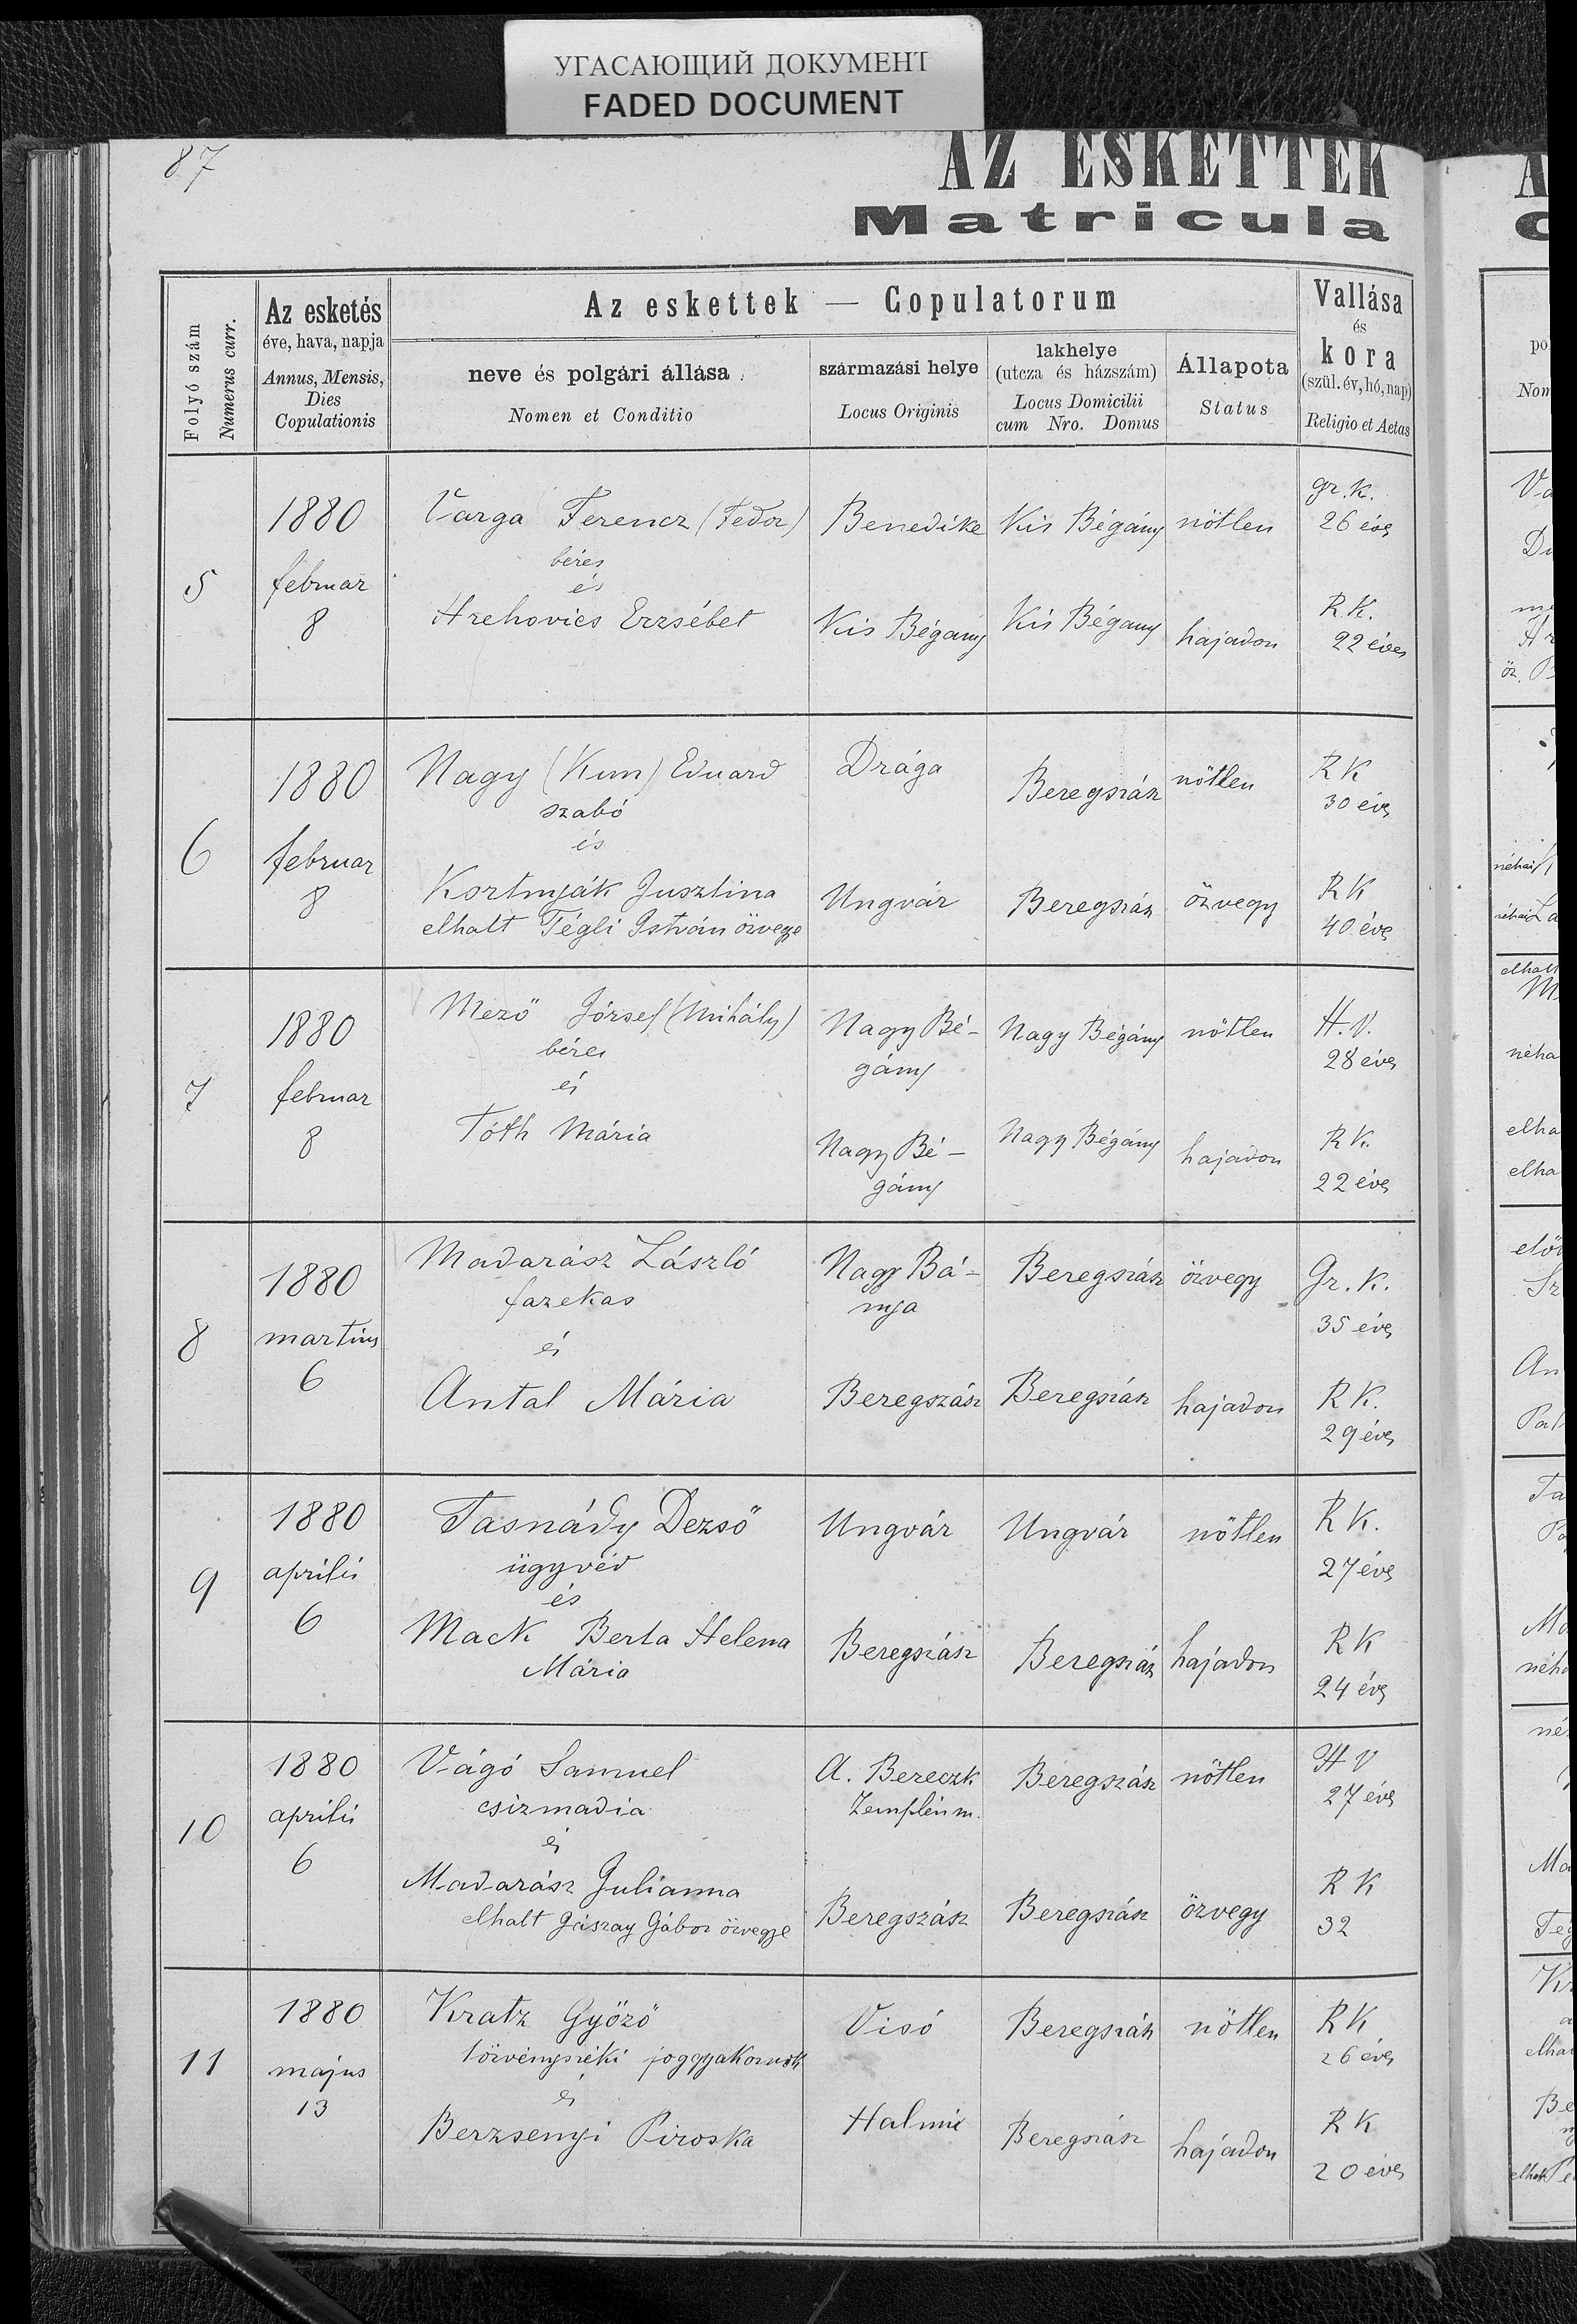 УГАСАЮЩИЙ ДОКУМЕНТ
FADED DOCUMENT
87
AZ ESKETTEK
Matricula
Folyó szám
Numerus curr.
Az esketés
éve, hava, napja
Annus, Mensis,
Dies
Copulationis
Az eskettek — Copulatorum
neve és polgári állása
Nomen et Conditio
származási helye
Locus Originis
lakhelye
(utcza és házszám)
Locus Domicilii
cum Nro. Domus
Állapota
Status
Vallása
és
kora
(szül. év, hó, nap)
Religio et Aetas
5
1880
februar
8
Varga Ferencz (Fedor)
béres
és
Hrehovics Erzsébet
Benedike
Kis Bégány
Kis Bégány
Kis Bégany
nötlen
hajadon
gr. K.
26 éves
R K.
22 éves
6
1880
februar
8
Nagy (Kun) Eduard
szabó
és
Kortnyák Jusztina
elhalt Tégli István özvegye
Drága
Ungvár
Beregszász
Beregszász
nötlen
özvegy
R K
30 éves
R K
40 éves
7
1880
februar
8
Mező József (Mihály)
béres
és
Tóth Mária
Nagy Bé-
gány
Nagy Bé-
gány
Nagy Bégány
Nagy Bégány
nötlen
hajadon
H. V.
28 éves
R K.
22 éves
8
1880
martius
6
Madarász László
fazekas
és
Antal Mária
Nagy Bá-
nya
Beregszász
Beregszász
Beregszász
özvegy
hajadon
Gr. K.
35 éves
R K.
29 éves
9
1880
április
6
Tasnády Dezső
ügyvéd
és
Mack Berta Helena
Mária
Ungvár
Beregszász
Ungvár
Beregszász
nötlen
hajadon
R K.
27 éves
R K
24 éves
10
1880
április
6
Vágó Samuel
csizmadia
és
Madarász Julianna
elhalt Gászay Gábor özvegye
A. Bereczk
Zemplén m.
Beregszász
Beregszász
Beregszász
nötlen
özvegy
H V
27 éves
R K
32
11
1880
május
13
Kratz Győző
törvényszéki joggyakornok
és
Berzsenyi Piroska
Visó
Halmi
Beregszász
Beregszász
nötlen
hajadon
R K
26 éves
R K
20 éves